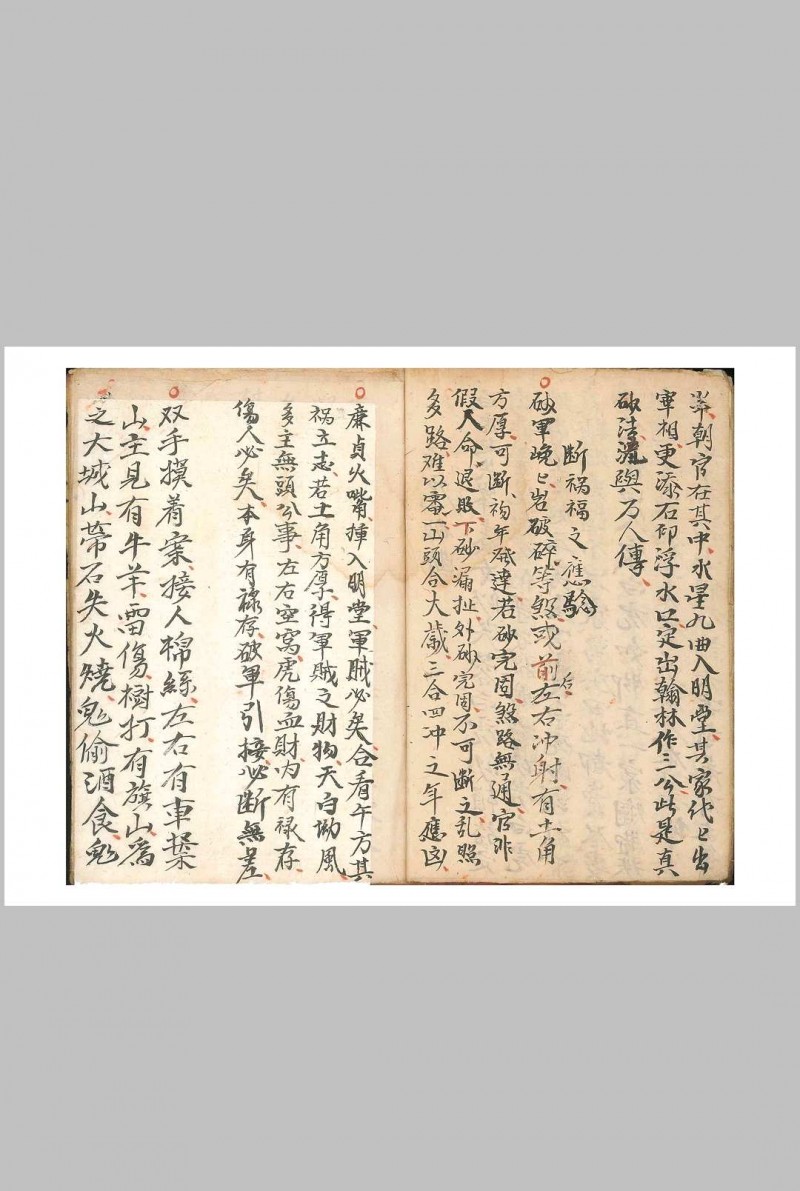 举朝官在其中水星九曲入明堂其家代〻出
宰相更添石印浮水口定出翰林作三公此是真
砂法流與万人傳
断祸福之應驗
砂軍巉〻岩破碎等煞或前后左右冲射有土角
方厚可断祸年砥達若砂完固煞路無通官非
假人命退敗下砂漏扯外砂完固不可断之乱照
多路难以露一山頭合大歲三合四冲之年應凶
廉貞火嘴揷入明堂軍賊必矣合看午方其
祸立志若土角方厚得軍賊之財物天白坳風
多主無頭公事左右空窝虎傷血財内有禄存
傷人必矣本身有禄存破軍引接必断無差
双手摸着案接人棉絲左右有車槳
山主見有牛羊雷傷樹打有旗山為
之大城山帶石失火燒鬼偷酒食鬼